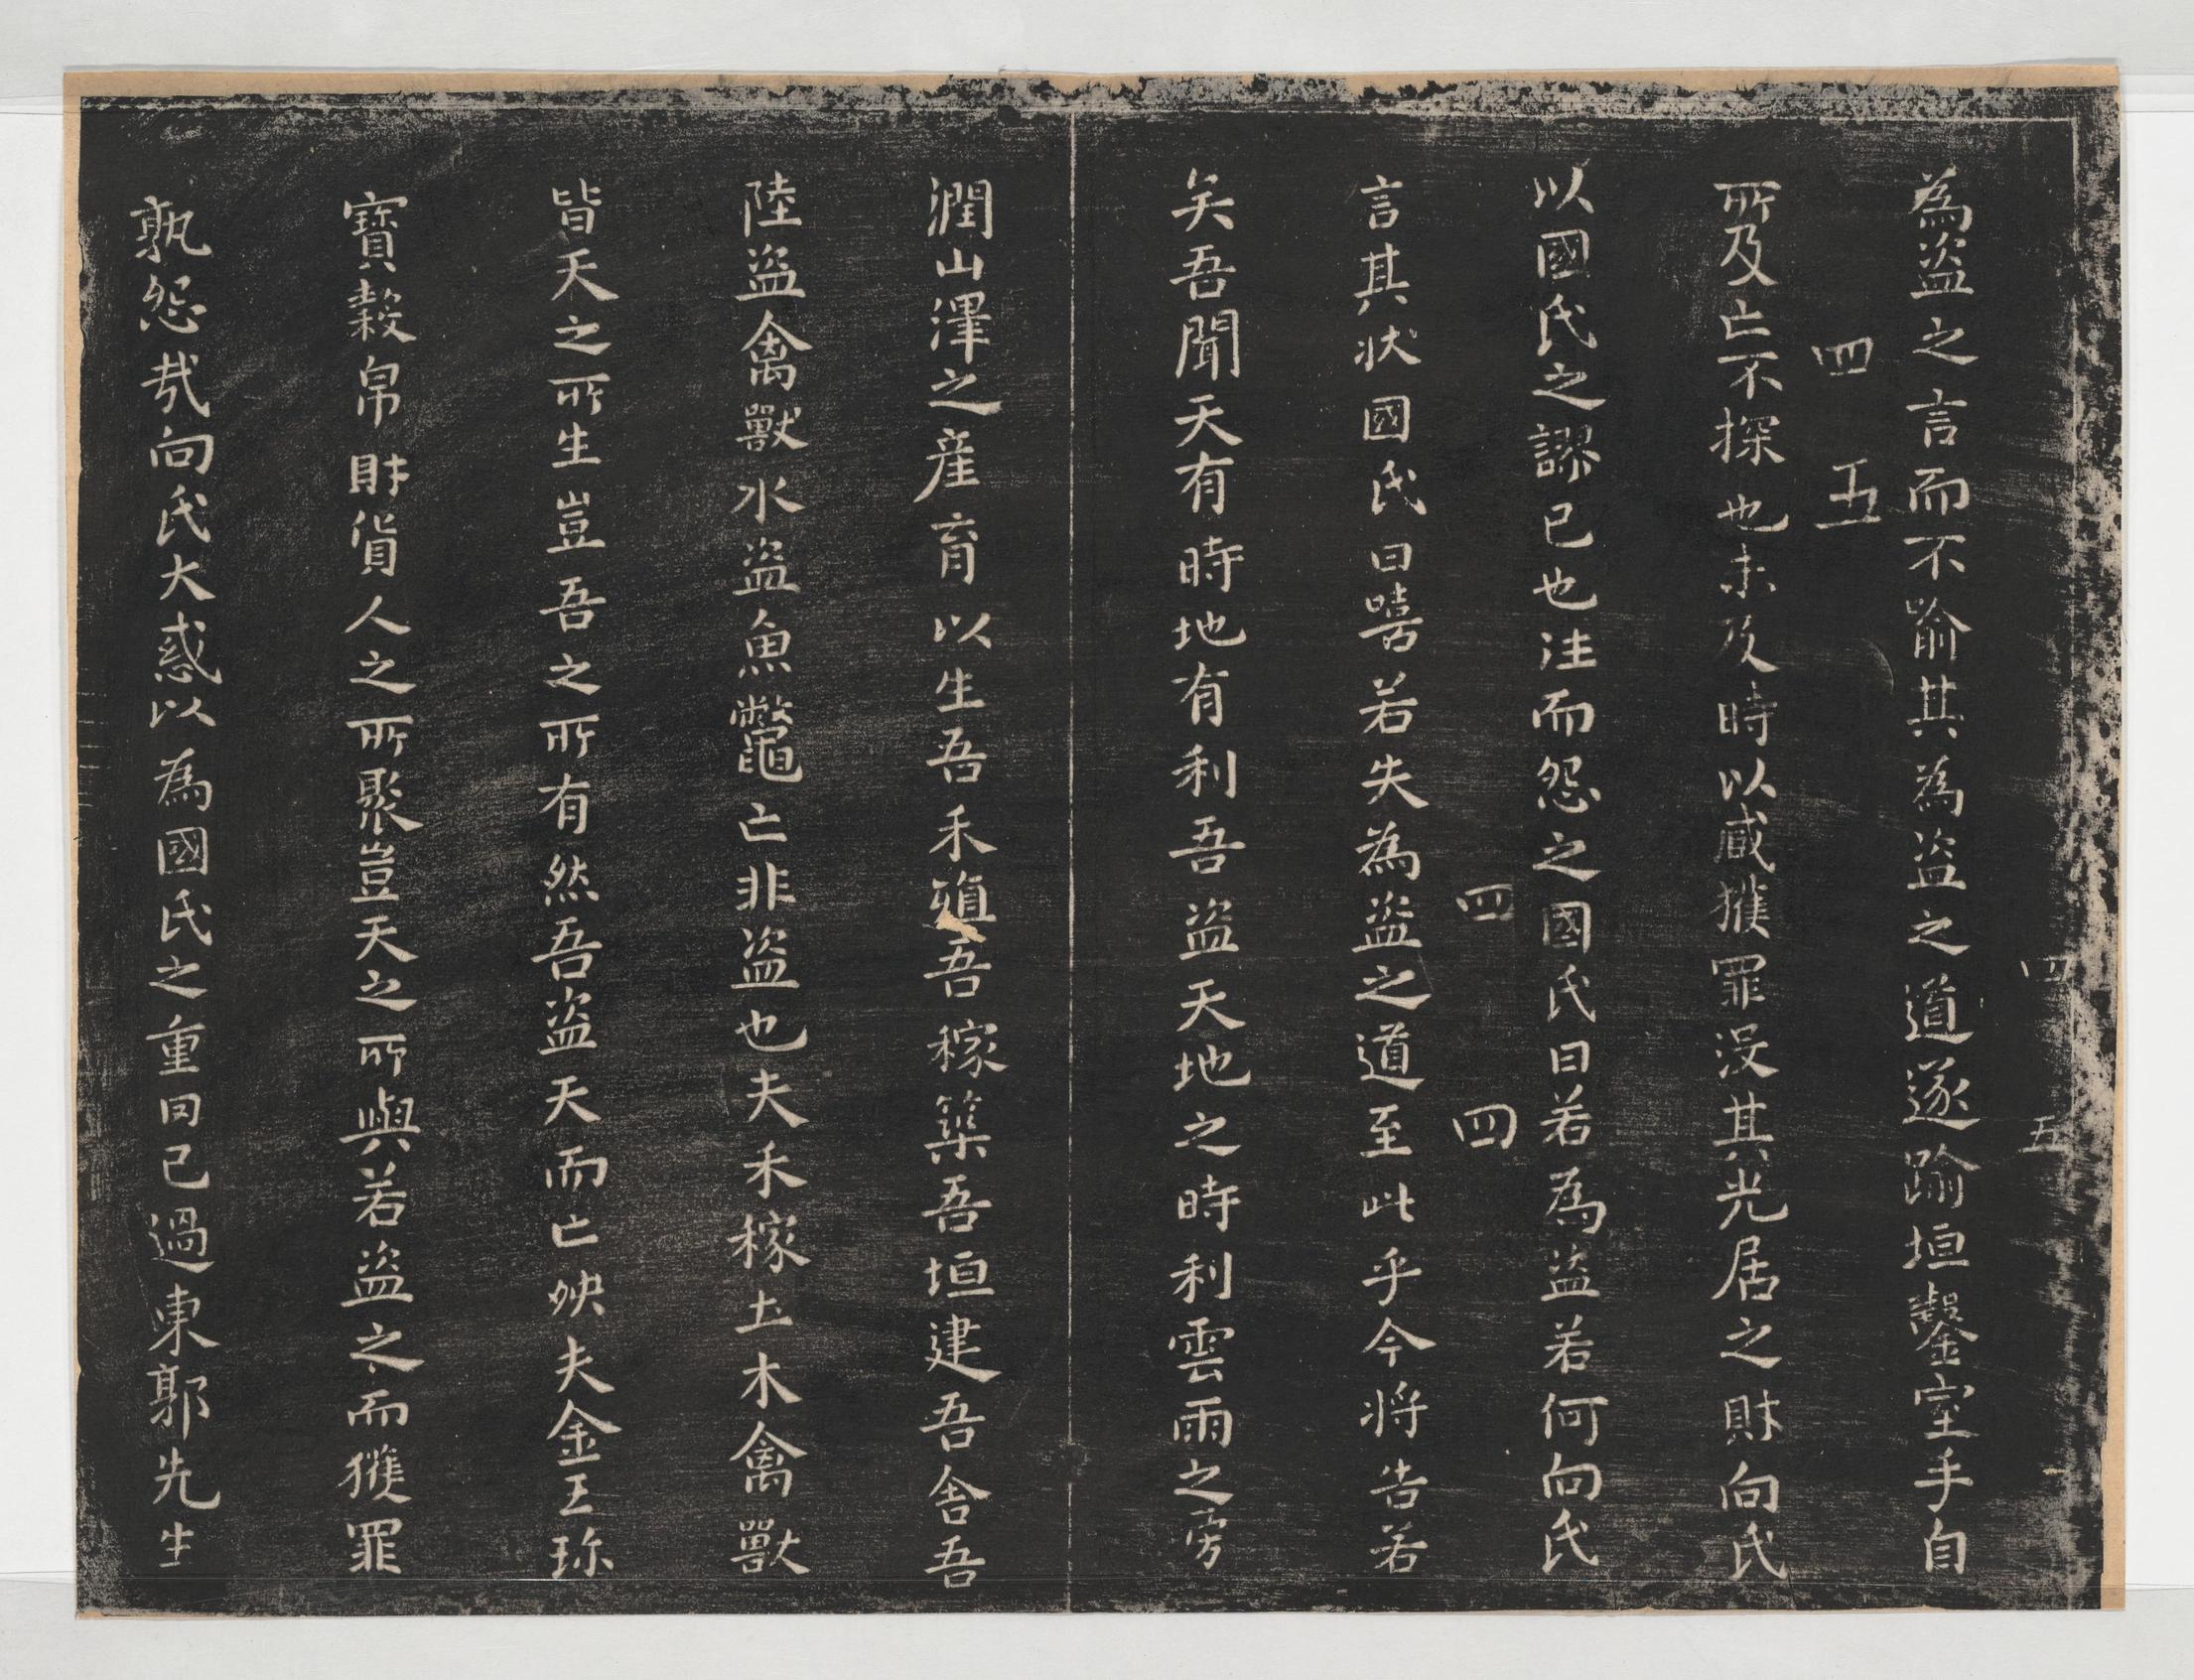 為盜之言而不喻其為盜之道遂踰垣鑿室手自
四五
四五
所及亡不探也未及時以臧獲罪沒其先居之財向氏
以國氏之謬己也注而怨之國氏曰若為盜若何向氏
四四
言其狀國氏曰嘻若失為盜之道至此乎今將告若
矣吾聞天有時地有利吾盜天地之時利雲雨之滂
潤山澤之產育以生吾禾殖吾稼築吾垣建吾舍吾
陸盜禽獸水盜魚鼈亡非盜也夫禾稼土木禽獸
皆天之所生豈吾之所有然吾盜天而亡殃夫金玉珎
寶穀帛財貨人之所聚豈天之所與若盜之而獲罪
孰怨哉向氏大惑以為國氏之重囙己過東郭先生